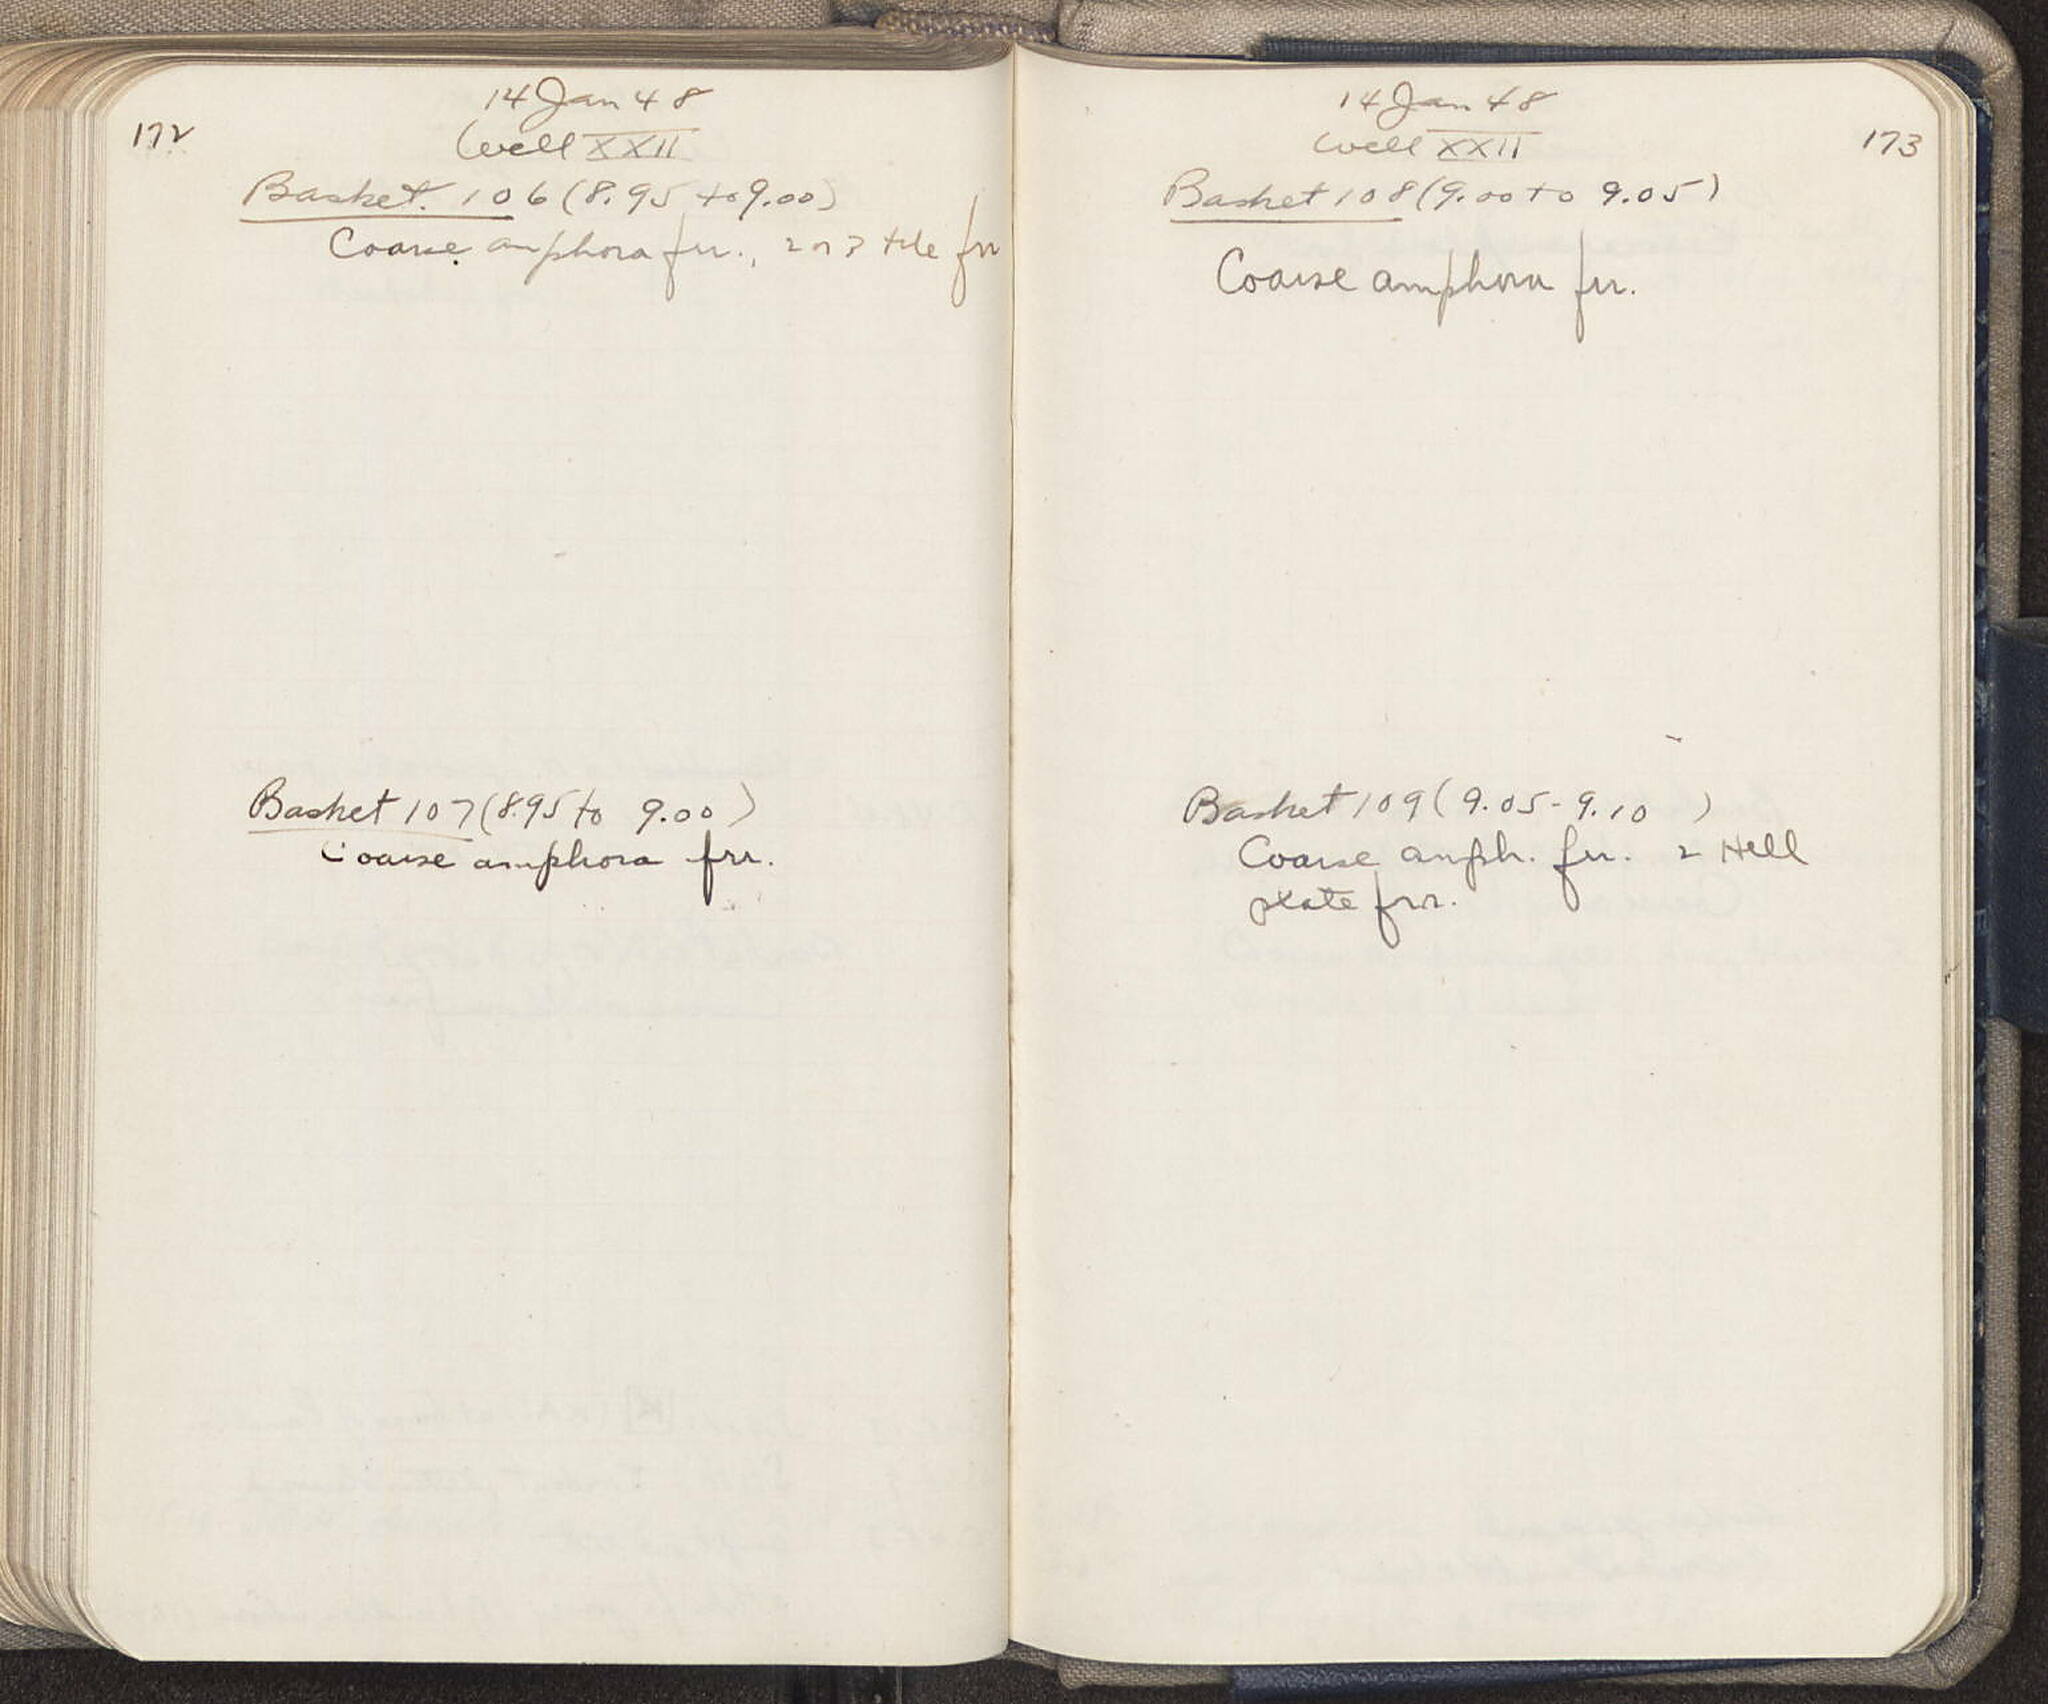 172
14 Jan 48
Well XXII
Basket 106 (8.95 to 9.00)
Coarse amphora frr., 2 or 3 tile frr
Basket 107 (8.95 to 9.00)
Coarse amphora frr.
173
14 Jan 48
Well XXII
Basket 108 (9.00 to 9.05)
Coarse amphora frr.
Basket 109 (9.05 - 9.10)
Coarse amph. frr. 2 Hell
plate frr.